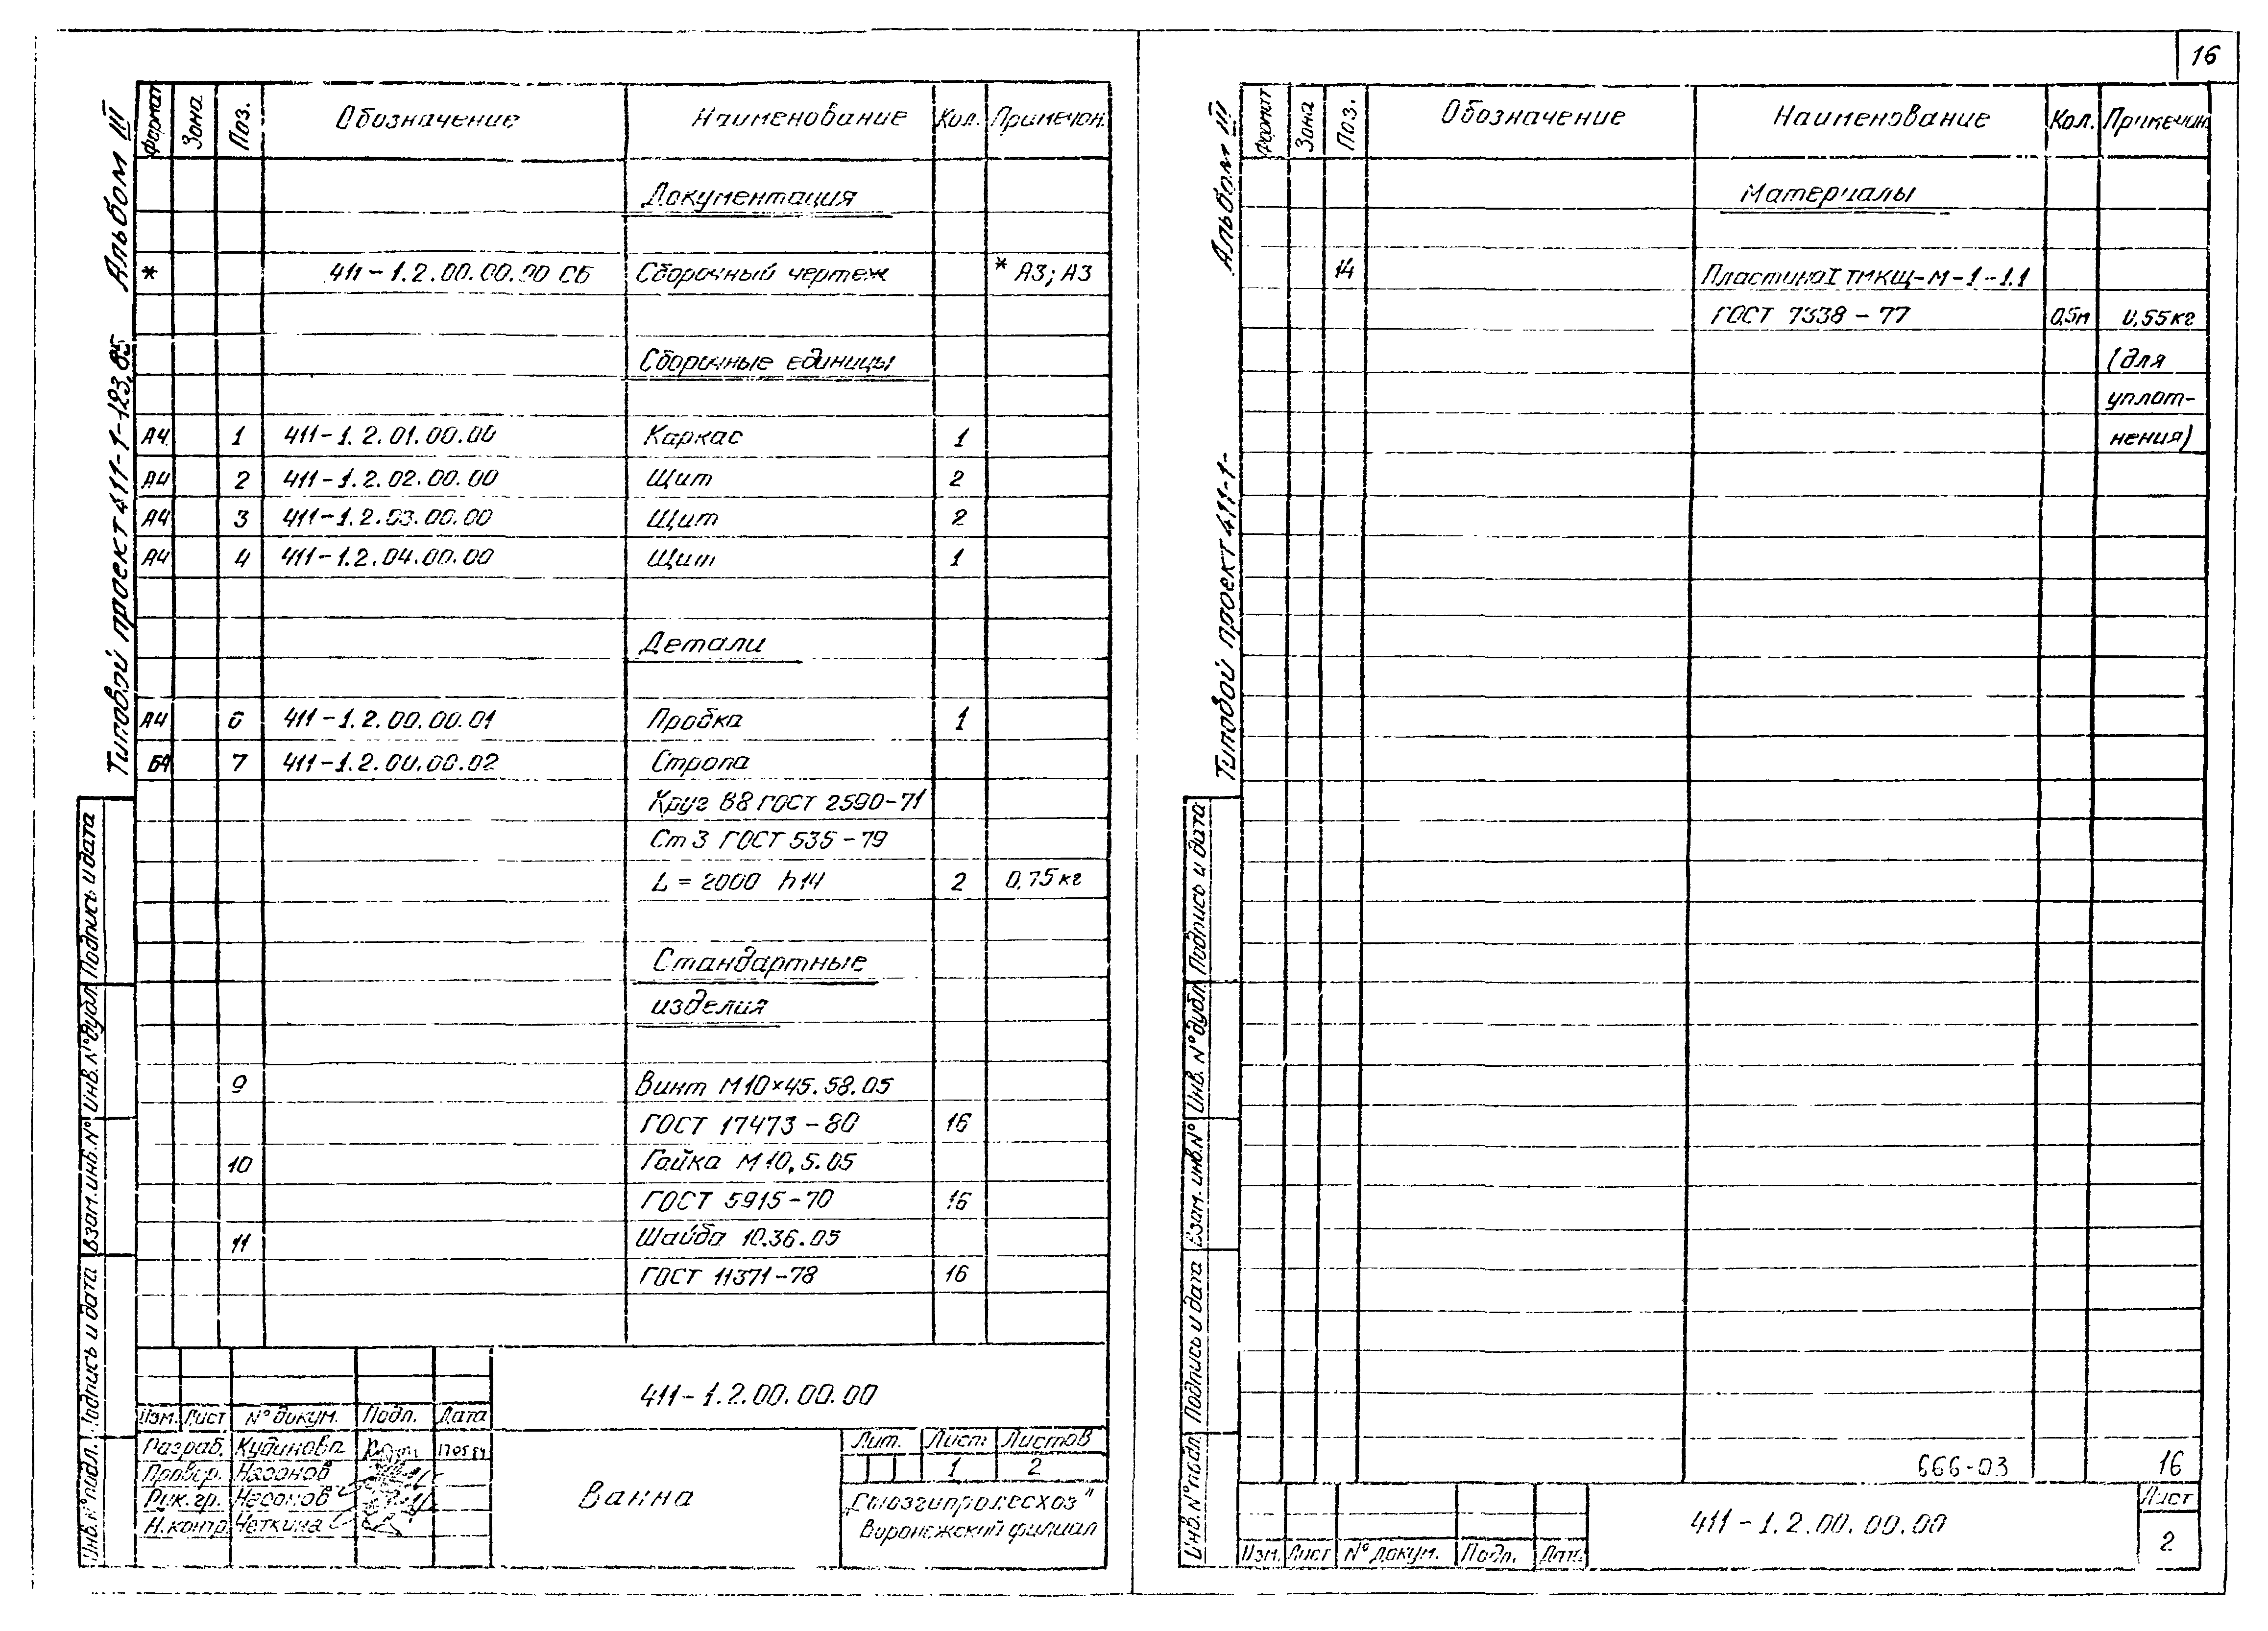 16
Альбом III
Типовой проект 411-1-123.85
Формат Зона Поз. Обозначение Наименование Кол. Примечан.
Документация
* 411-1.2.00.00.00 СБ Сборочный чертеж * А3; А3
Сборочные единицы
А4 1 411-1.2.01.00.00 Каркас 1
А4 2 411-1.2.02.00.00 Щит 2
А4 3 411-1.2.03.00.00 Щит 2
А4 4 411-1.2.04.00.00 Щит 1
Детали
А4 6 411-1.2.00.00.01 Пробка 1
БЧ 7 411-1.2.00.00.02 Стропа
Круг В8 ГОСТ 2590-71
Ст 3 ГОСТ 535-79
L = 2000 h14 2 0,75 кг
Стандартные
изделия
9 Винт М10×45.58.05
ГОСТ 17473-80 16
10 Гайка М10.5.05
ГОСТ 5915-70 16
11 Шайба 10.36.05
ГОСТ 11371-78 16
Подпись и дата
Инв. № дубл.
Взам. инв. №
Подпись и дата
Инв. № подл.
411-1.2.00.00.00
Изм. Лист № докум. Подп. Дата
Разраб. Кудинова
Провер. Насонов
Рук. гр. Насонов
Н. контр. Четкина
Ванна
Лит. Лист Листов
1 2
"Союзгипролесхоз"
Воронежский филиал
Альбом III
Типовой проект 411-1-
Формат Зона Поз. Обозначение Наименование Кол. Примечан.
Материалы
14 Пластина I ТМКЩ-М-1-1.1
ГОСТ 7338-77 0,5м 0,55 кг
(для
уплот-
нения)
Подпись и дата
Инв. № дубл.
Взам. инв. №
Подпись и дата
Инв. № подл.
666-03 16
411-1.2.00.00.00
Изм. Лист № докум. Подп. Дата
Лист
2